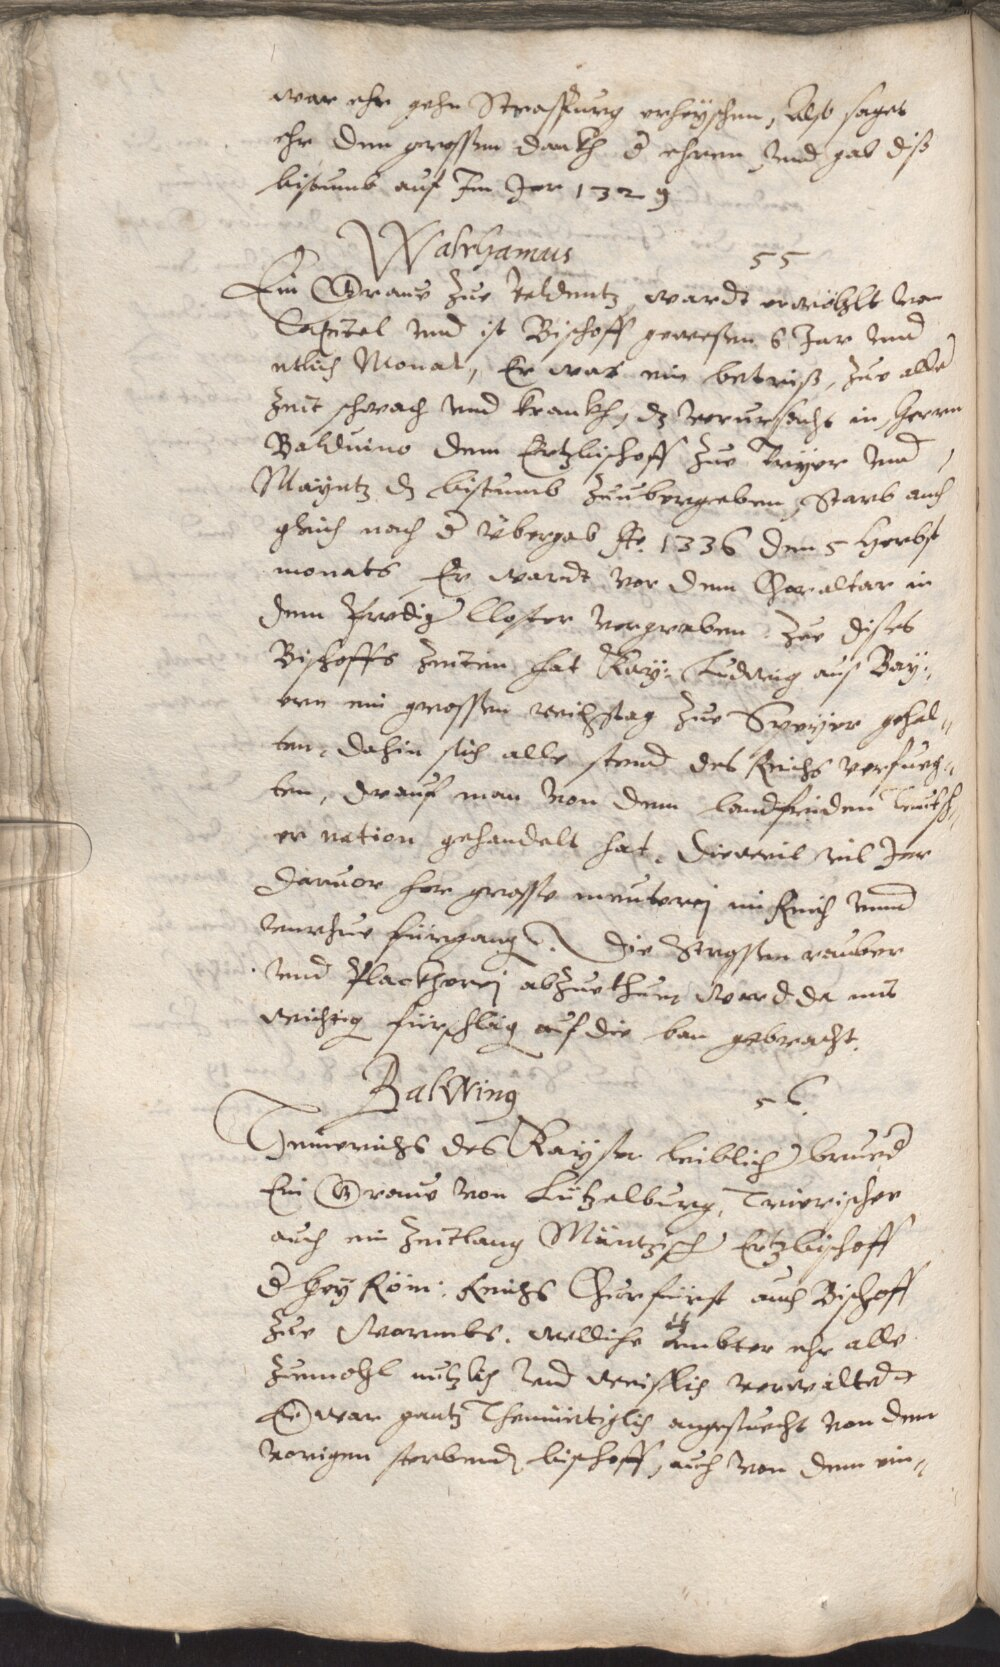 war ehr gehn Strassburg erheyschen, Also saget
ehr dem grossen danckh d ehren, vnd gab diß
bistumb auf Im Jar 1329
Walrhamus 55
Ein Graue zue Veldentz wardt erwöhlt vom
Capitel vnd ist Bischoff gewesen 6 Jar vnd
etlich Monat, Er was ein betriß, zue aller
Zeit schwach vnd kranckh, dz verursacht in, Herrn
Balduino dem Ertzbischoff zue Tryer vnd
Mayntz dz bistumb zuubergeben, Starb auch
gleich nach d übergab Ao. 1336 den 5 Herbst
monats Er wardt vor dem Choraltar in
dem Predig Closter vergraben. Zue dises
Bischoffs Zeiten hat Kay: Ludwig auß Bay:
ern ein grossen reichstag zue Speyer gehal„
ten, dahin sich alle stend des Reichs verfueg„
ten, drauf man von dem landfriden teutsch„
er nation gehandelt hat. Dieweil vil Jar
daruor her grosse meuterej im Reich vnnd
vnrhue fürgang. Die Strassen rauber
vnd Plackherej abzuethun ward da mit
wichtig fürschlag auf die ban gebracht.
Baldwing 56.
Heinrichs des Kaysers leiblich brued
Ein Graue von Lützelburg, Trierischer
auch ein Zeitlang Mäintzisch Ertzbischoff
d Hey. Röm: Reichs Churfürst auch Bischoff
zue Wormbs. welliche ämbter ehr alle
zuemohl nutzlich vnd weißlich verwaltedt
Er war gantz Themüetiglich angesuecht von dem
vorigen sterbend bischoff, auch von dem ein„